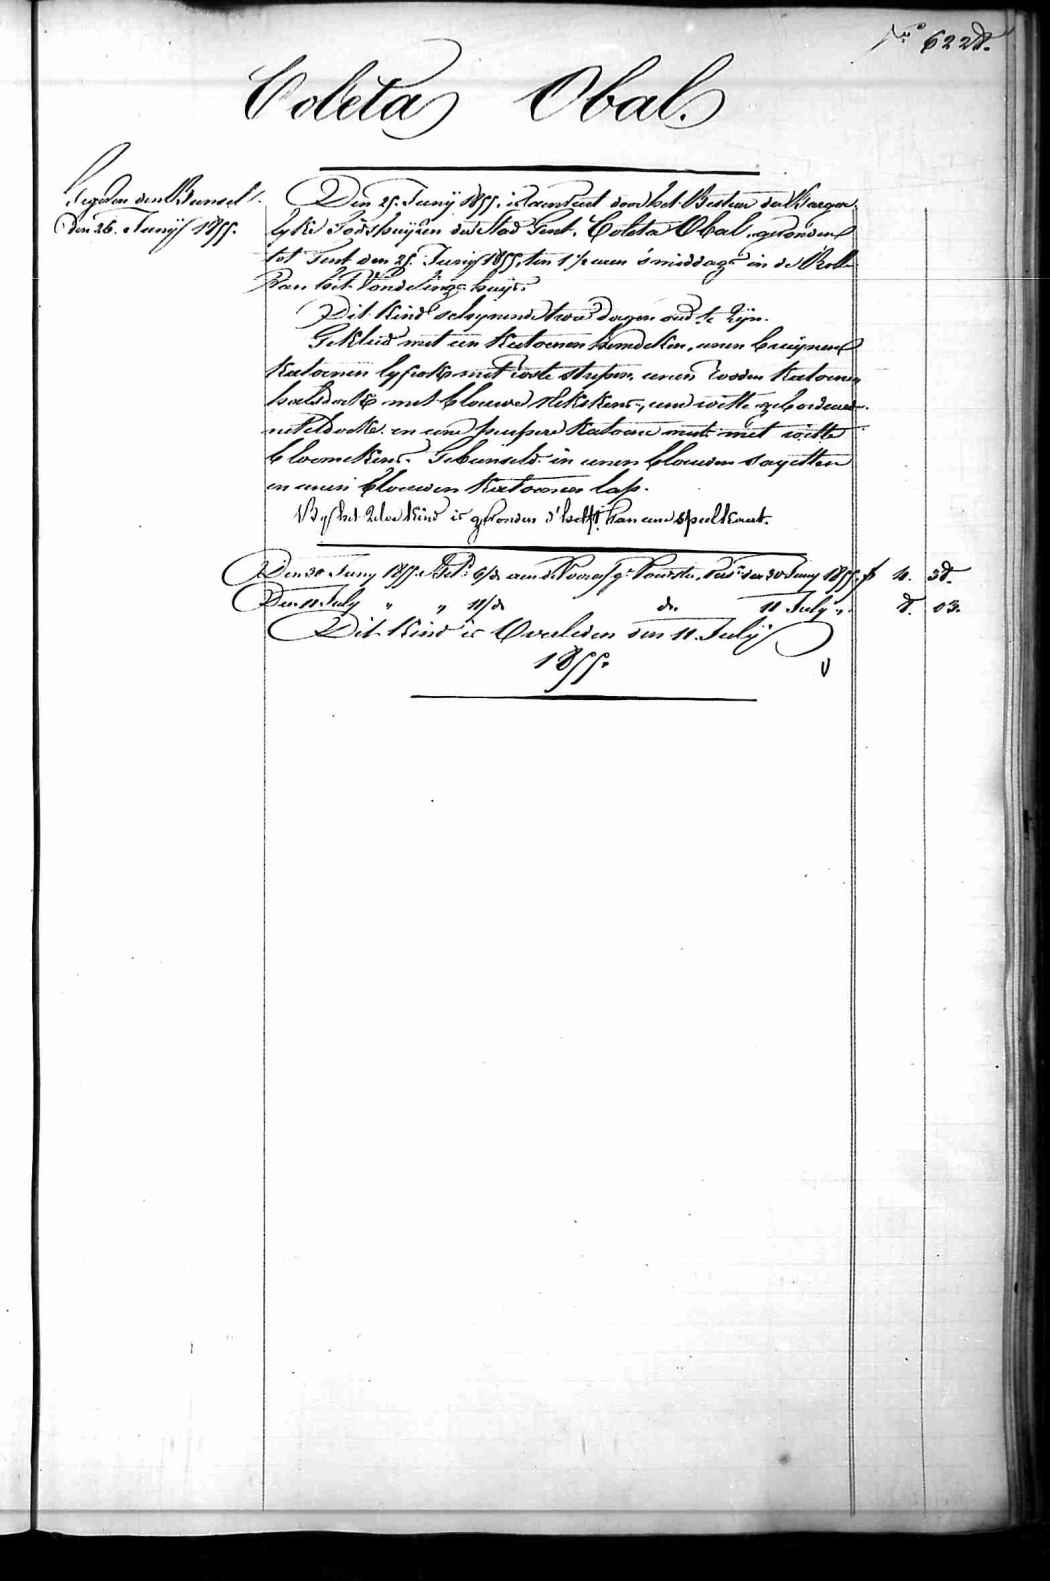 N.° 6228.
Coleta Obal.
Gegeven den Bunsel
den 26. Junij 1855.
Den 25. Junij 1855. is aenveert door het Bestier der Burger
lyke Godshuyzen der Stad Gent, Coleta Obal, gevonden
tot Gent den 25. Junij 1855, ten 1 1/2 uren s'middags in de Rolle
van het Vondelings huys.
Dit kind schynende twee dagen oud te zyn.
Gekleed met een katoenen hemdeken, eenen bruynen
katoenen lyfrok met roste strepen, eenen rooden katoenen
halsdoek met blauwe blekskens, eene witte geborduerde
neteldoeke en eene purpere katoene muts met witte
bloemekens. Gebunseld in eenen blauwen sayetten
en eenen blauwen katoenen lap.
By het zelve kind is gevonden d'helft van eene speelkaert.
Den 30 Juny 1855. 6/d aen de Voorst. den 30 Juny 1855. f 4. 38.
Den 11 July " " 11/d do. 11 July ". 8. 03.
Dit kind is Overleden den 11. July
1855.